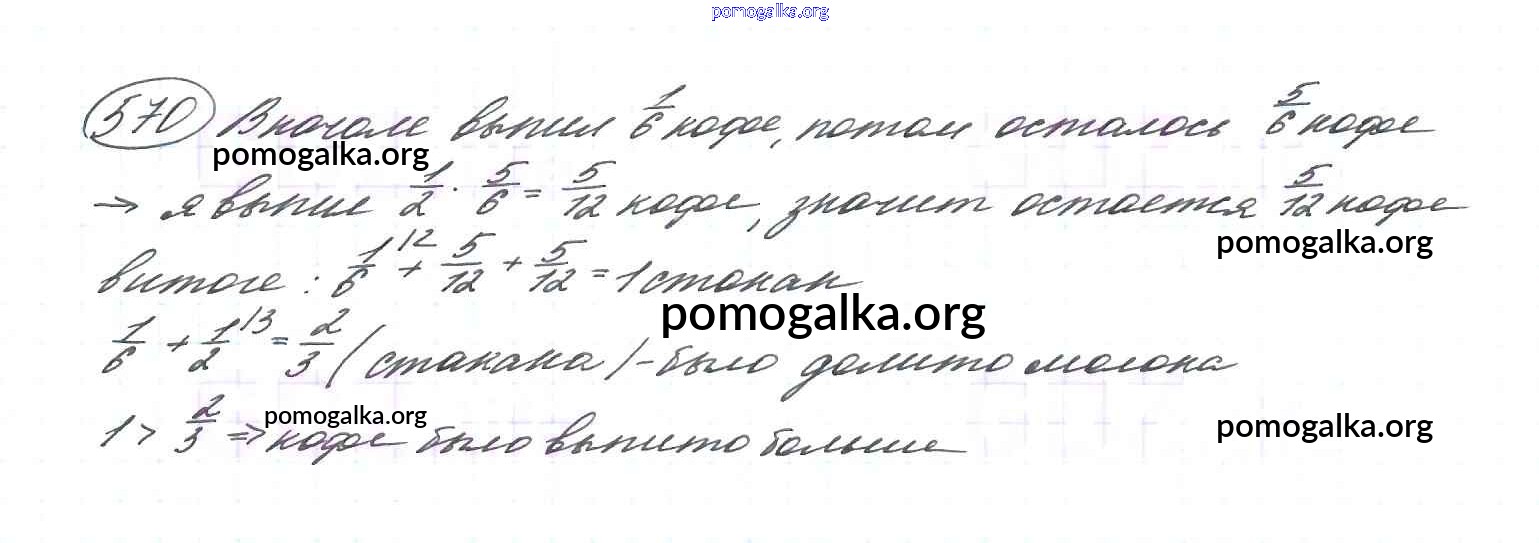 pomogalka.org
570 Вначале выпил 1/6 кофе, потом осталось 5/6 кофе
pomogalka.org
→ я выпил 1/2 · 5/6 = 5/12 кофе, значит остается 5/12 кофе
pomogalka.org
в итоге: 1/6 \2 + 5/12 + 5/12 = 1 стакан
pomogalka.org
1/6 + 1/2 \3 = 2/3 (стакана) - было долито молока
1 > 2/3 => кофе было выпито больше
pomogalka.org
pomogalka.org